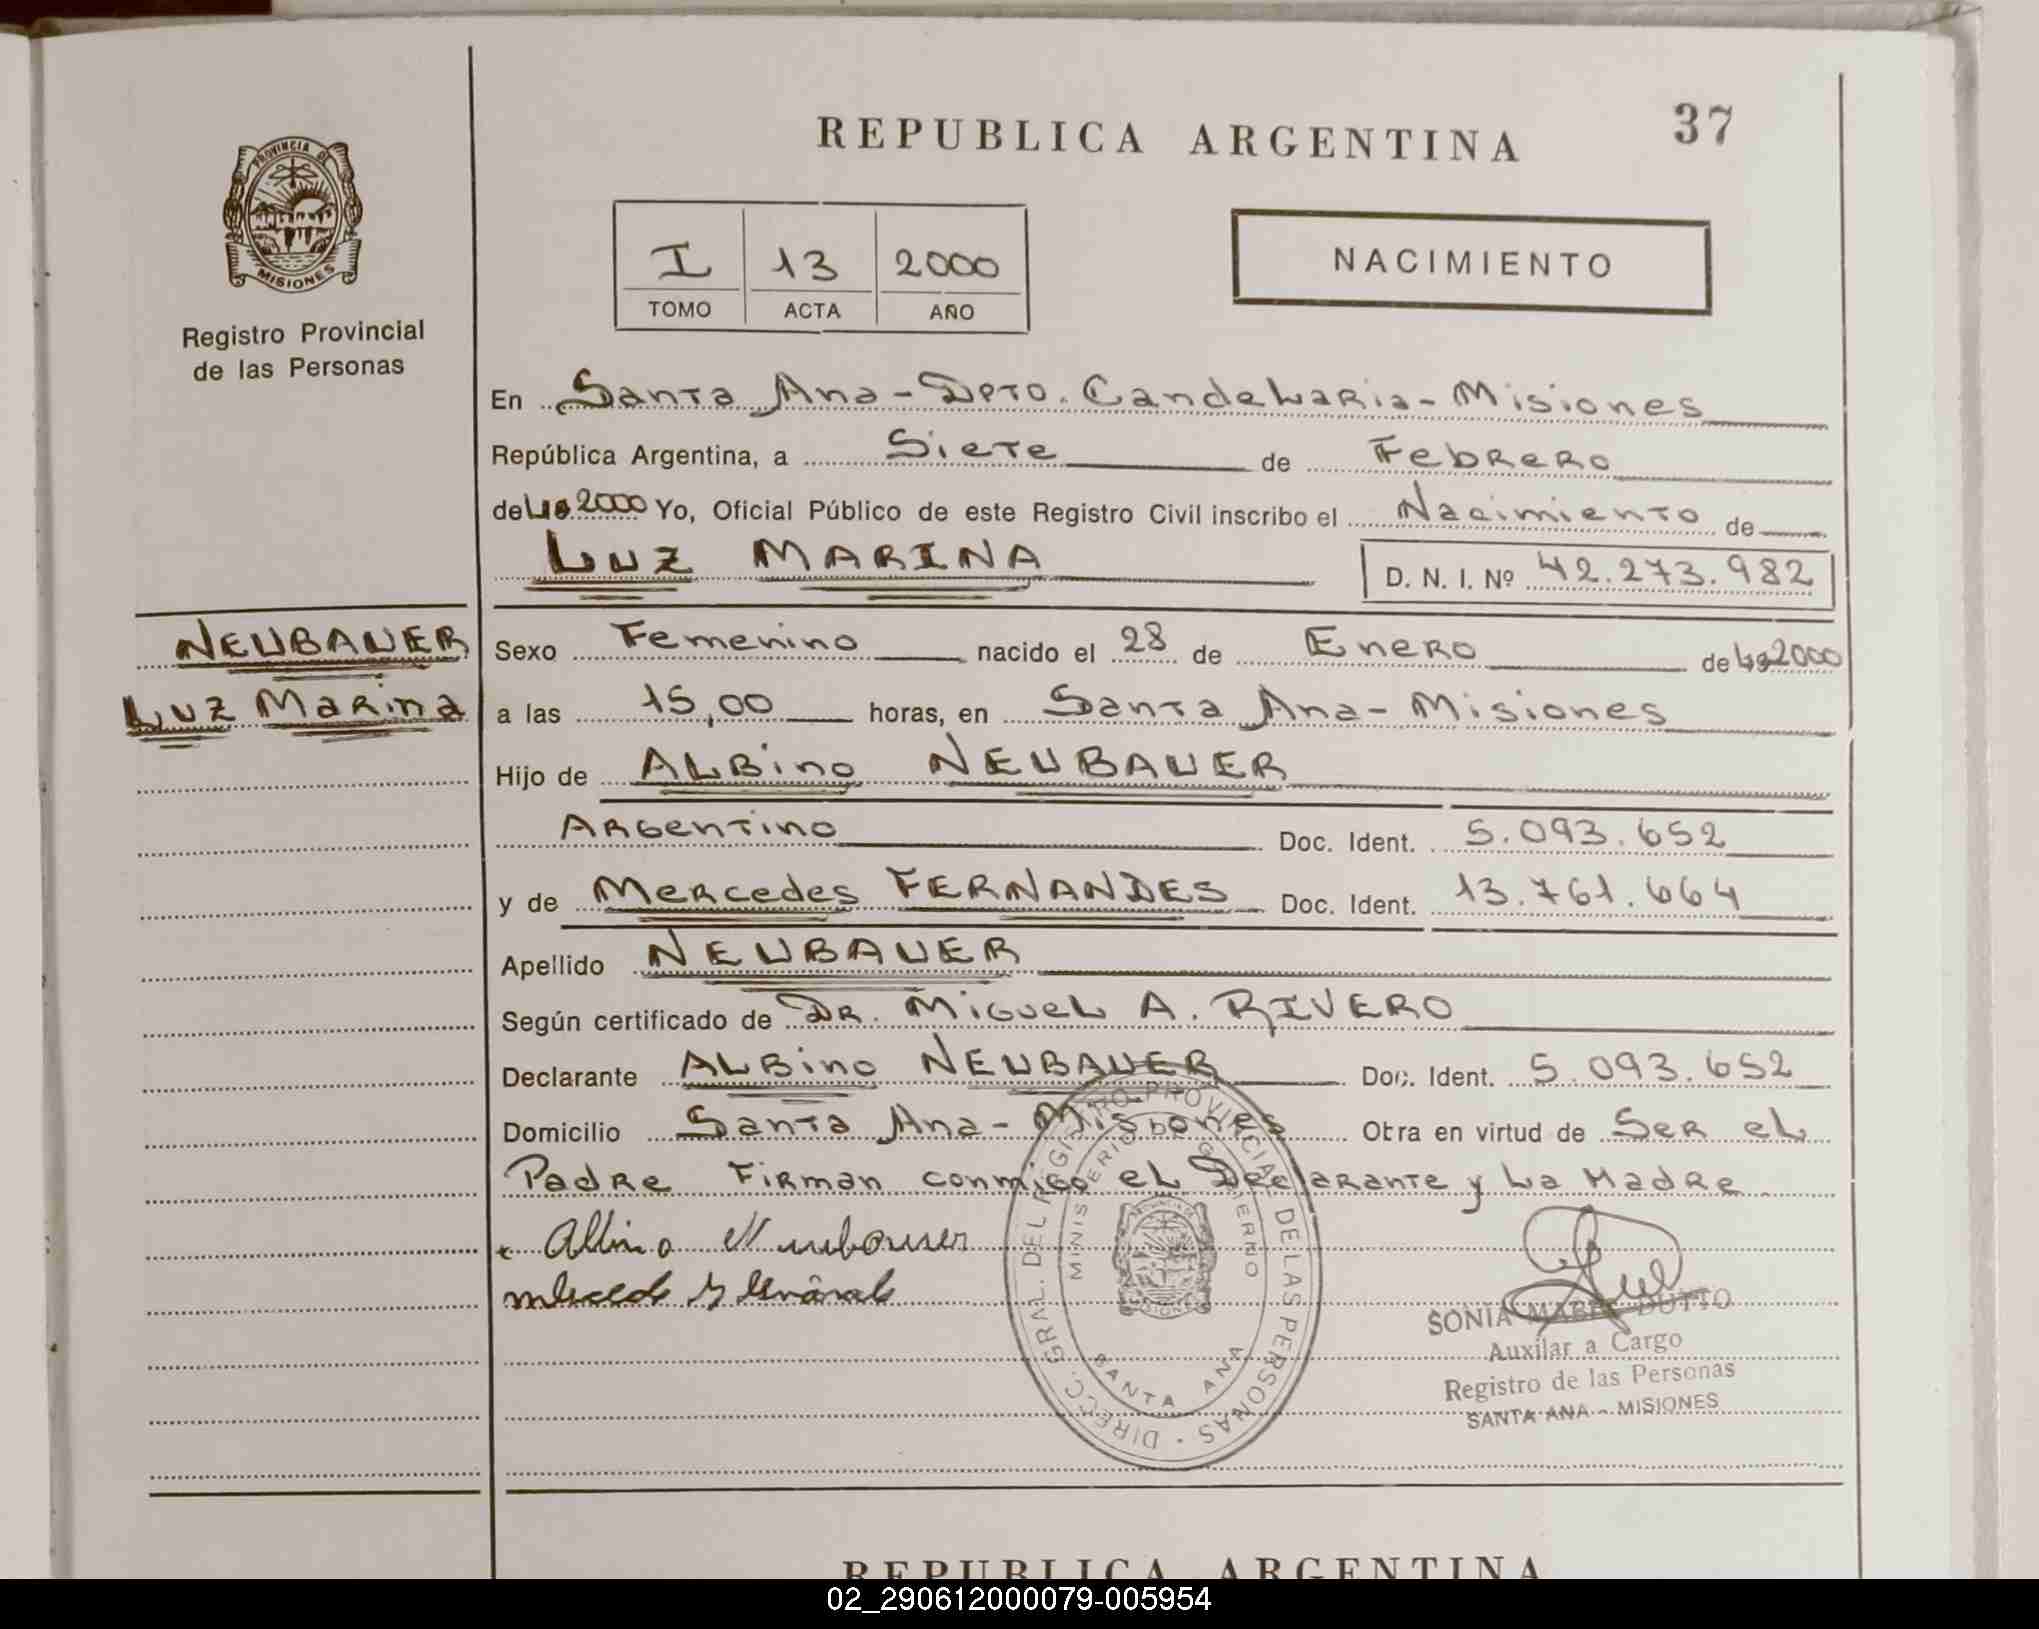 REPUBLICA ARGENTINA 37
PROVINCIA DE
MISIONES
Registro Provincial
de las Personas
I 13 2000
TOMO ACTA AÑO
NACIMIENTO
En Santa Ana - Dpto. Candelaria - Misiones
República Argentina, a Siete de Febrero
de 2000 Yo, Oficial Público de este Registro Civil inscribo el Nacimiento de
LUZ MARINA D. N. I. Nº 42.273.982
NEUBAUER
Luz Marina
Sexo Femenino nacido el 28 de Enero de 2000
a las 15,00 horas, en Santa Ana - Misiones
Hijo de ALBino NEUBAUER
Argentino Doc. Ident. 5.093.652
y de Mercedes FERNANDES Doc. Ident. 13.761.664
Apellido NEUBAUER
Según certificado de DR. Miguel A. RIVERO
Declarante ALBino NEUBAUER Doc. Ident. 5.093.652
Domicilio Santa Ana - Misiones Otra en virtud de Ser el
Padre Firman conmigo el Declarante y La Madre
DIRECC. GRAL. DEL REGISTRO PROVINCIAL DE LAS PERSONAS
MINISTERIO DE GOBIERNO
SANTA ANA
SONIA MABEL DUTTO
Auxilar a Cargo
Registro de las Personas
SANTA ANA - MISIONES
REPUBLICA ARGENTINA
02_290612000079-005954